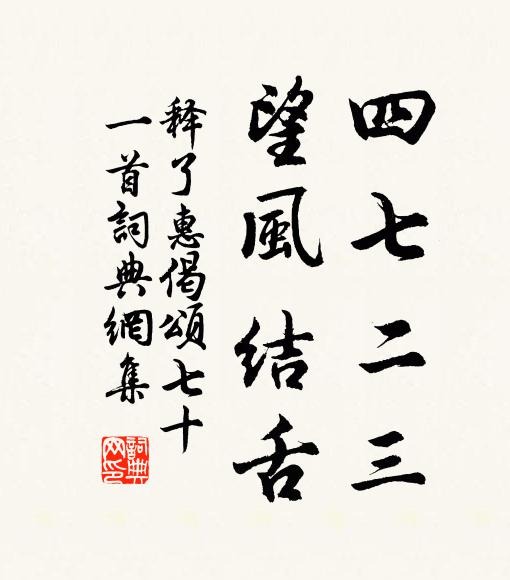 四七二三
望風結舌
释了惠偈頌七十
一首詞典網集
詞典
网印